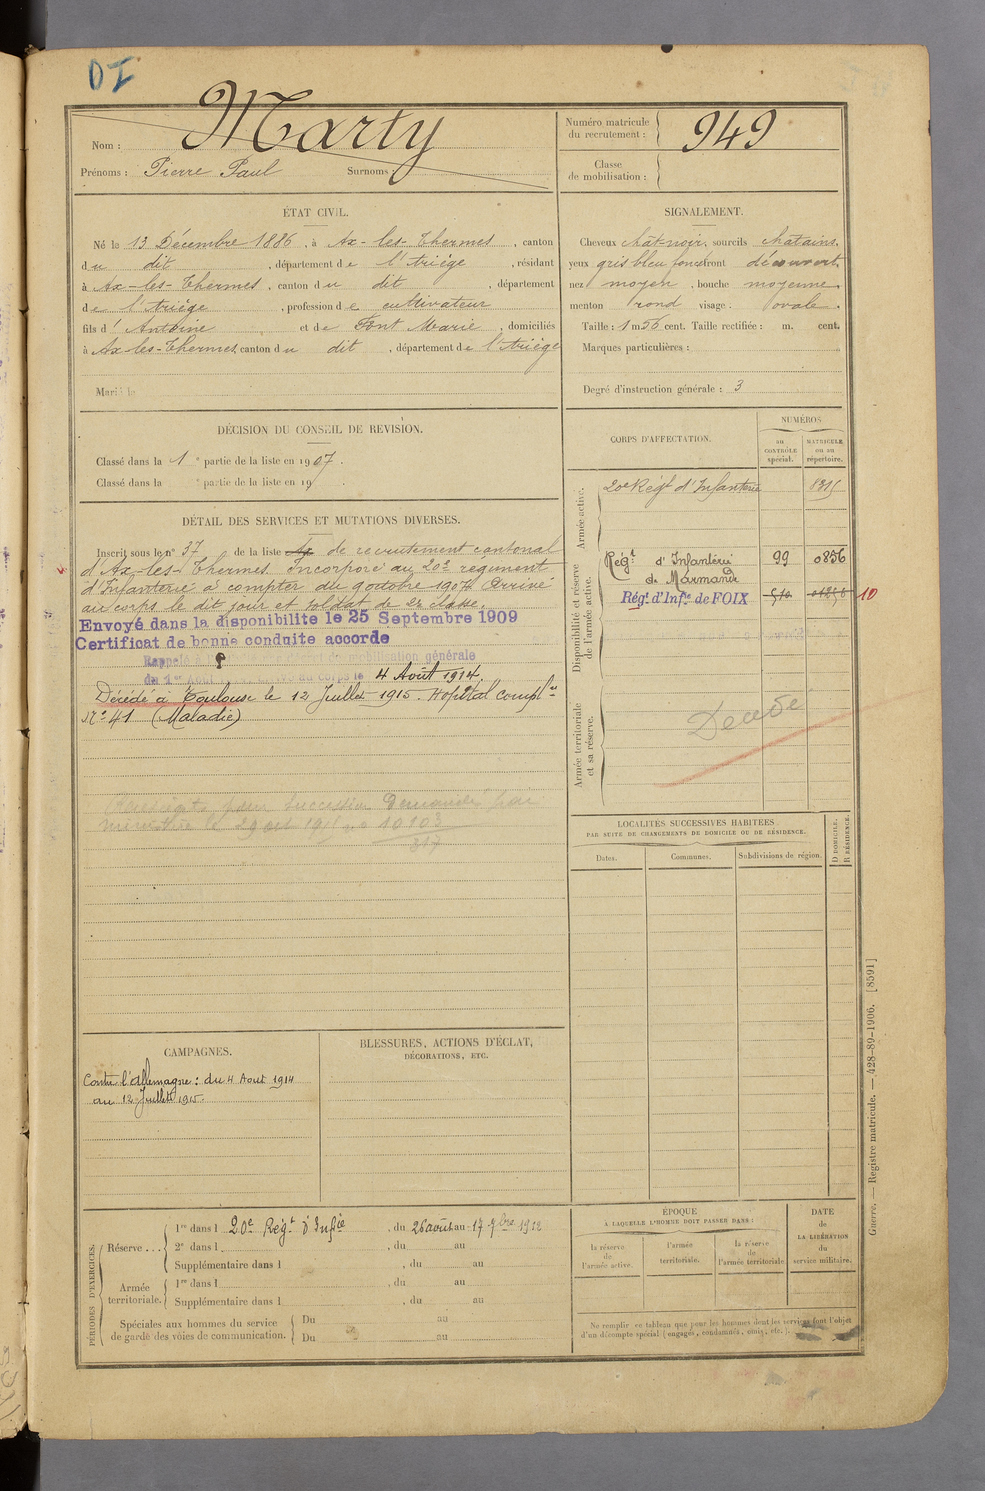 Nom : Marty
Prénoms : Pierre Paul Surnoms :
Numéro matricule du recrutement : 949
Classe de mobilisation :
ÉTAT CIVIL.
Né le 13 Décembre 1886, à Ax-les-Thermes, canton
du dit, département de l'Ariège, résidant
à Ax-les-Thermes, canton du dit, département
de l'Ariège, profession de cultivateur
fils d'Antoine et de Font Marie, domiciliés
à Ax-les-Thermes, canton du dit, département de l'Ariège
Marié le
SIGNALEMENT.
Cheveux chât-noir, sourcils châtains,
yeux gris bleu foncé front découvert,
nez moyen, bouche moyenne,
menton rond visage : ovale.
Taille : 1 m 56 cent. Taille rectifiée : m. cent.
Marques particulières :
Degré d'instruction générale : 3
DÉCISION DU CONSEIL DE REVISION.
Classé dans la 1e partie de la liste en 1907.
Classé dans la e partie de la liste en 19 .
DÉTAIL DES SERVICES ET MUTATIONS DIVERSES.
Inscrit sous le n° 37 de la liste Ax de recrutement cantonal
d'Ax-les-Thermes. Incorporé au 20e régiment
d'Infanterie à compter du 9 octobre 1907. Arrivé
au corps le dit jour et soldat de 2e classe.
Envoyé dans la disponibilité le 25 Septembre 1909
Certificat de bonne conduite accordé
Rappelé à mobilisation générale
du 1er Août corps le 4 Août 1914.
Décédé à Toulouse le 12 Juillet 1915. Hôpital complre
No 41 (Maladie)
succession Demandés par
ministère le 29 oct 191 10103
317
CORPS D'AFFECTATION.
NUMÉROS
au CONTRÔLE spécial.
MATRICULE ou au répertoire.
Armée active.
20e Régt d'Infanterie
Disponibilité et réserve de l'armée active.
Régt d'Infanterie de Marmande 99 0856
Régt d'Infie de FOIX 510
10
Armée territoriale et sa réserve.
Décédé
LOCALITÉS SUCCESSIVES HABITÉES
PAR SUITE DE CHANGEMENTS DE DOMICILE OU DE RÉSIDENCE.
Dates. Communes. Subdivisions de région. D DOMICILE. R RÉSIDENCE.
CAMPAGNES.
Contre l'Allemagne : du 4 Août 1914
au 12 Juillet 1915.
BLESSURES, ACTIONS D'ÉCLAT,
DÉCORATIONS, ETC.
PÉRIODES D'EXERCICES.
Réserve... 1re dans l 20e Régt d'Infie, du 26 août au 17 7bre 1912
2e dans l , du au
Supplémentaire dans l , du au
Armée territoriale. 1re dans l , du au
Supplémentaire dans l , du au
Spéciales aux hommes du service de garde des voies de communication. Du au
Du au
ÉPOQUE
À LAQUELLE L'HOMME DOIT PASSER DANS :
la réserve de l'armée active.
l'armée territoriale.
la réserve de l'armée territoriale
DATE de LA LIBÉRATION du service militaire.
Ne remplir ce tableau que pour les hommes dont les services font l'objet
d'un décompte spécial (engagés, condamnés, omis, etc.).
Guerre. — Registre matricule. — 428-89-1906. [8591]